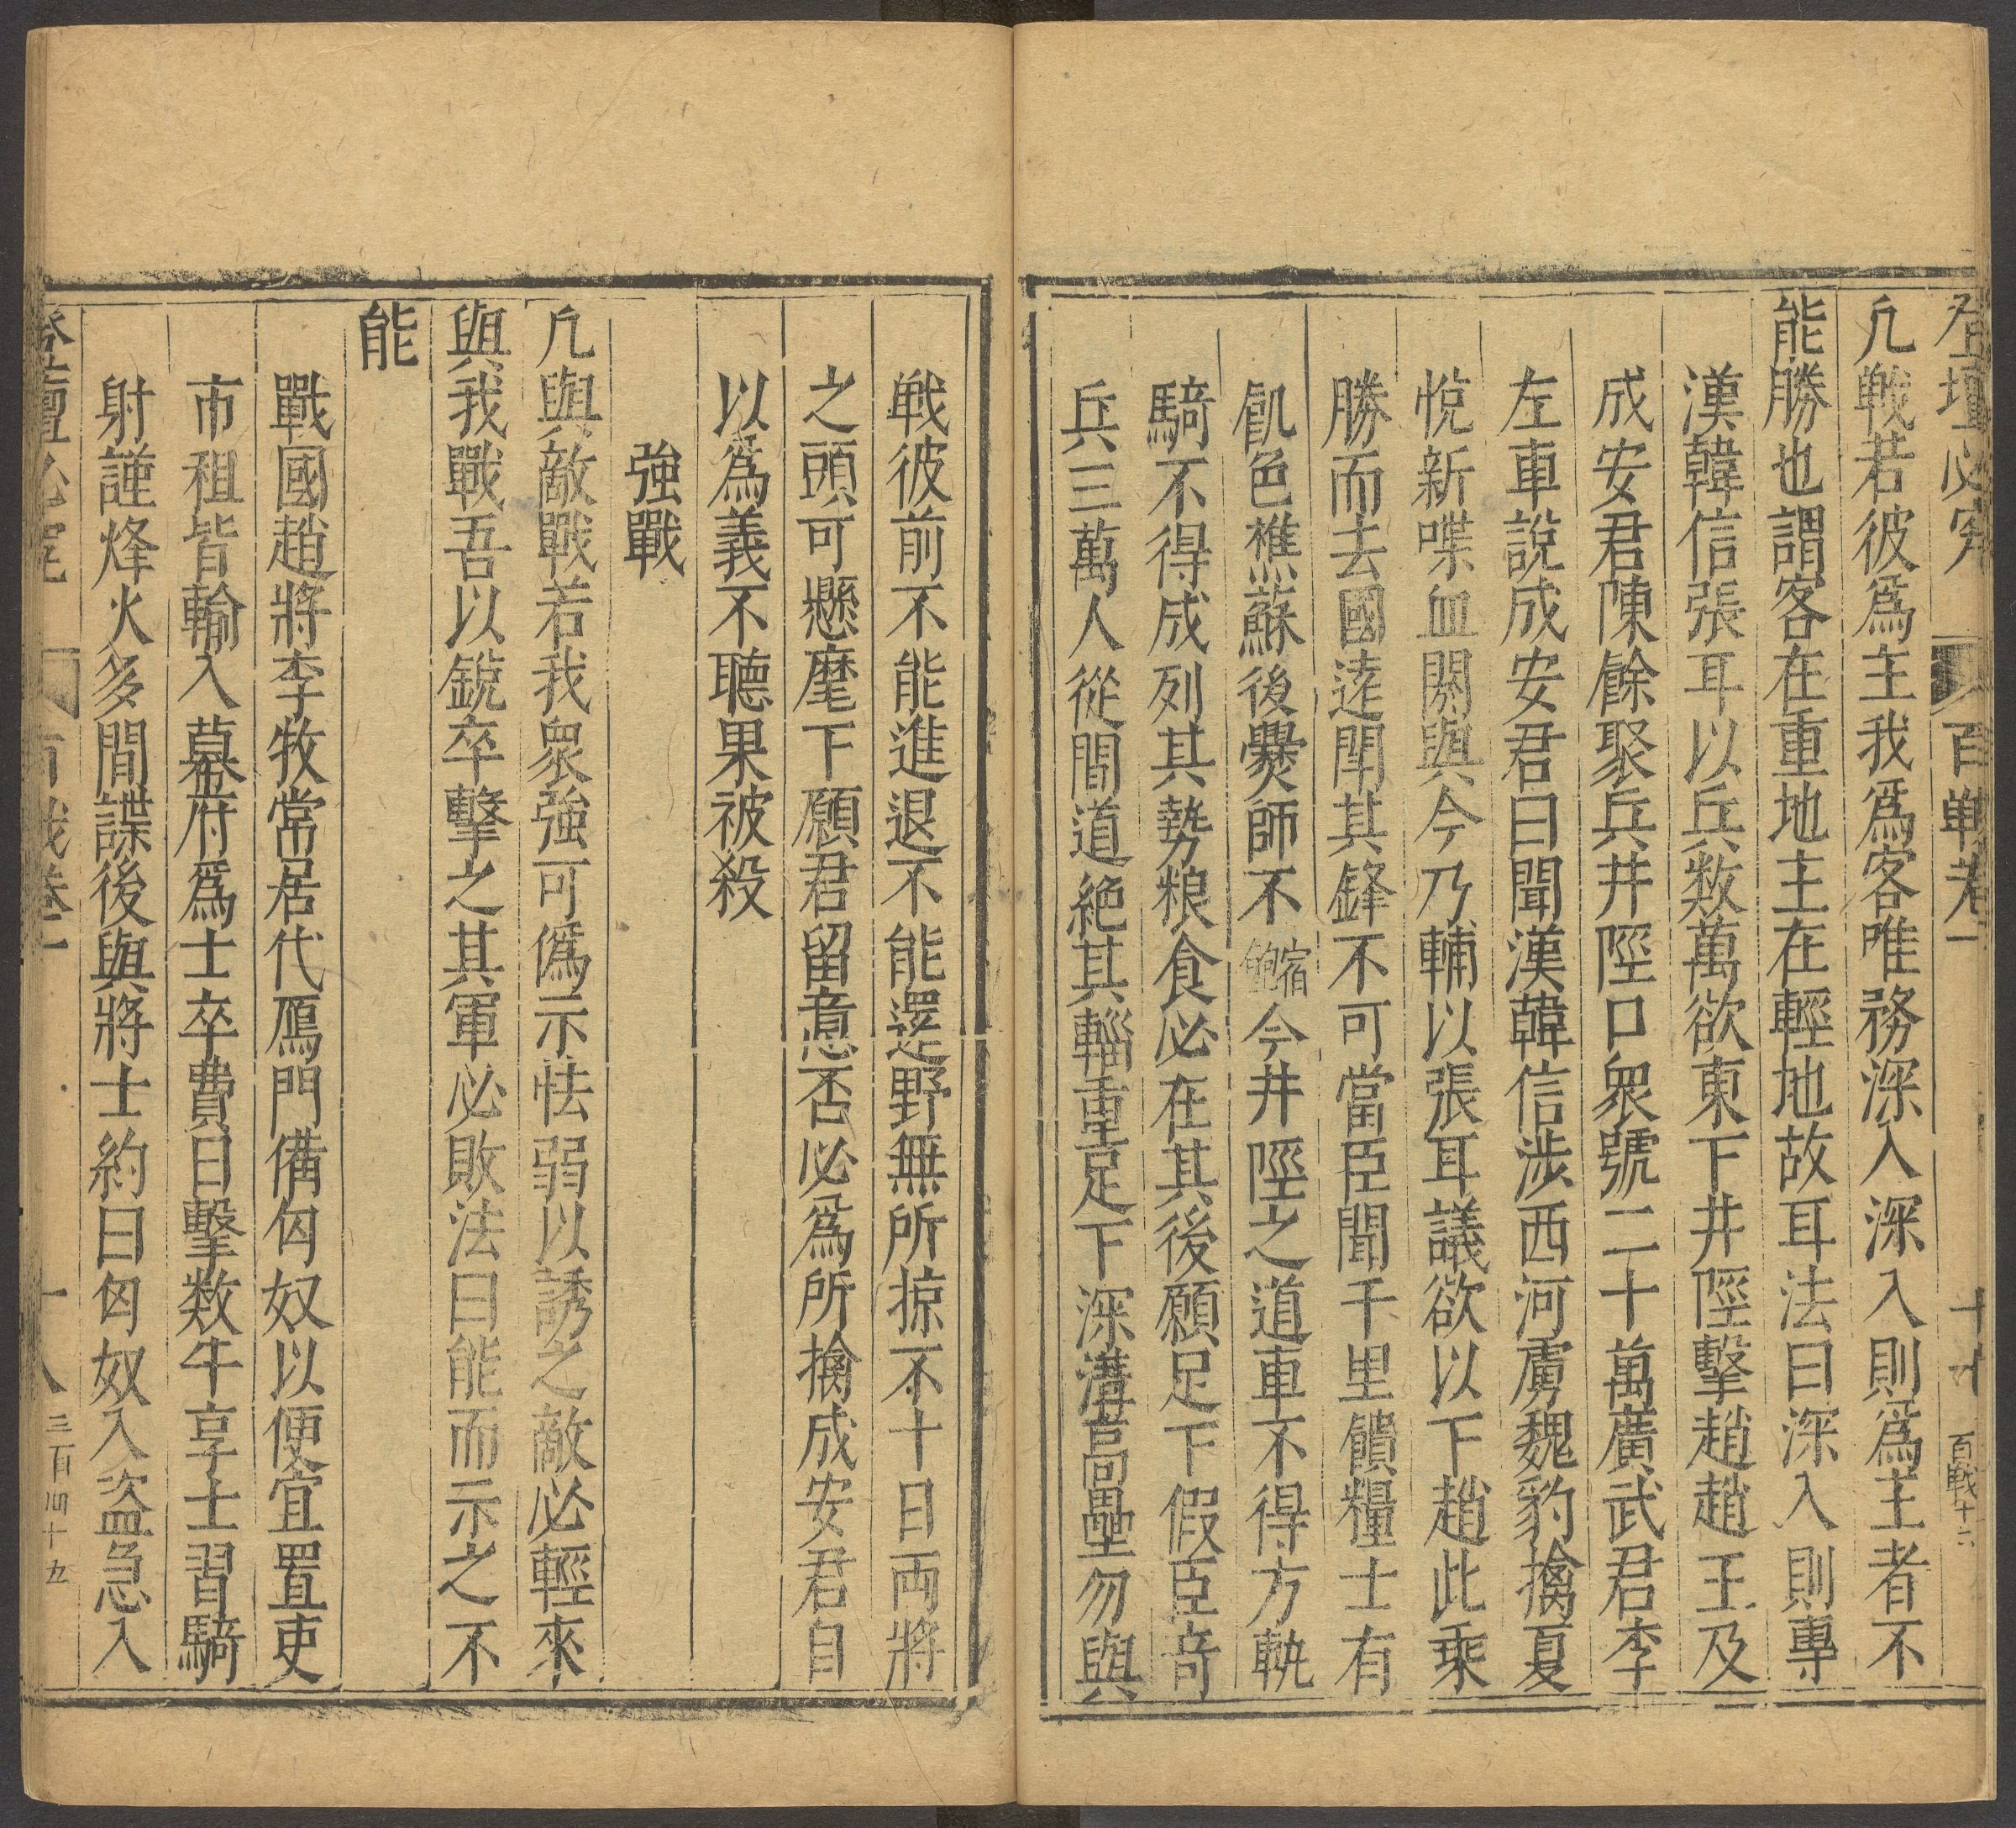 登壇必究 百戰卷一 十七 百戰十六
凢戰若彼爲主我爲客唯務深入深入則爲主者不
能勝也謂客在重地主在輕地故耳法曰深入則專
漢韓信張耳以兵数萬欲東下井陘擊趙趙王及
成安君陳餘聚兵井陘口衆號二十萬廣武君李
左車說成安君曰聞漢韓信涉西河虜魏豹擒夏
悅新喋血閼與今乃輔以張耳議欲以下趙此乘
勝而去國逺鬬其鋒不可當臣聞千里饋糧士有
飢色樵蘇後爨師不宿飽今井陘之道車不得方軌
騎不得成列其勢粮食必在其後願足下假臣竒
兵三萬人從間道絶其輜重足下深溝高壘勿與
戦彼前不能進退不能還野無所掠不十日両將
之頭可懸麾下願君留意否必爲所擒成安君自
以爲義不聽果被殺
強戰
凢與敵戰若我衆強可僞示怯弱以誘之敵必輕來
與我戰吾以銳卒擊之其軍必敗法曰能而示之不
能
戰國趙將李牧常居代鴈門備匈奴以便宜置吏
市租皆輸入幕府爲士卒費日擊数牛享士習騎
射謹烽火多間諜後與將士約曰匈奴入盗急入
登壇必究 百戰卷一 十八 三百四十五